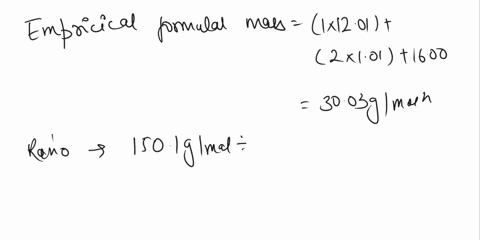 Empricical formulal mass = (1x12.01)+
(2x1.01)+1600
= 30.03g/mol
Ratio → 150.1g/mol ÷